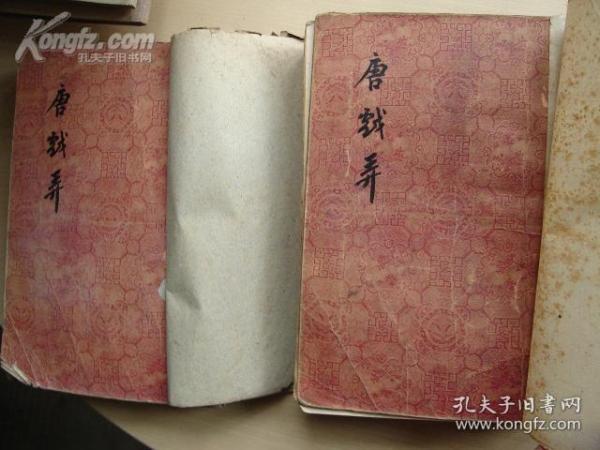 Kongfz.com
孔夫子旧书网
唐戯弄
唐戯弄
孔夫子旧书网
www.kongfz.com